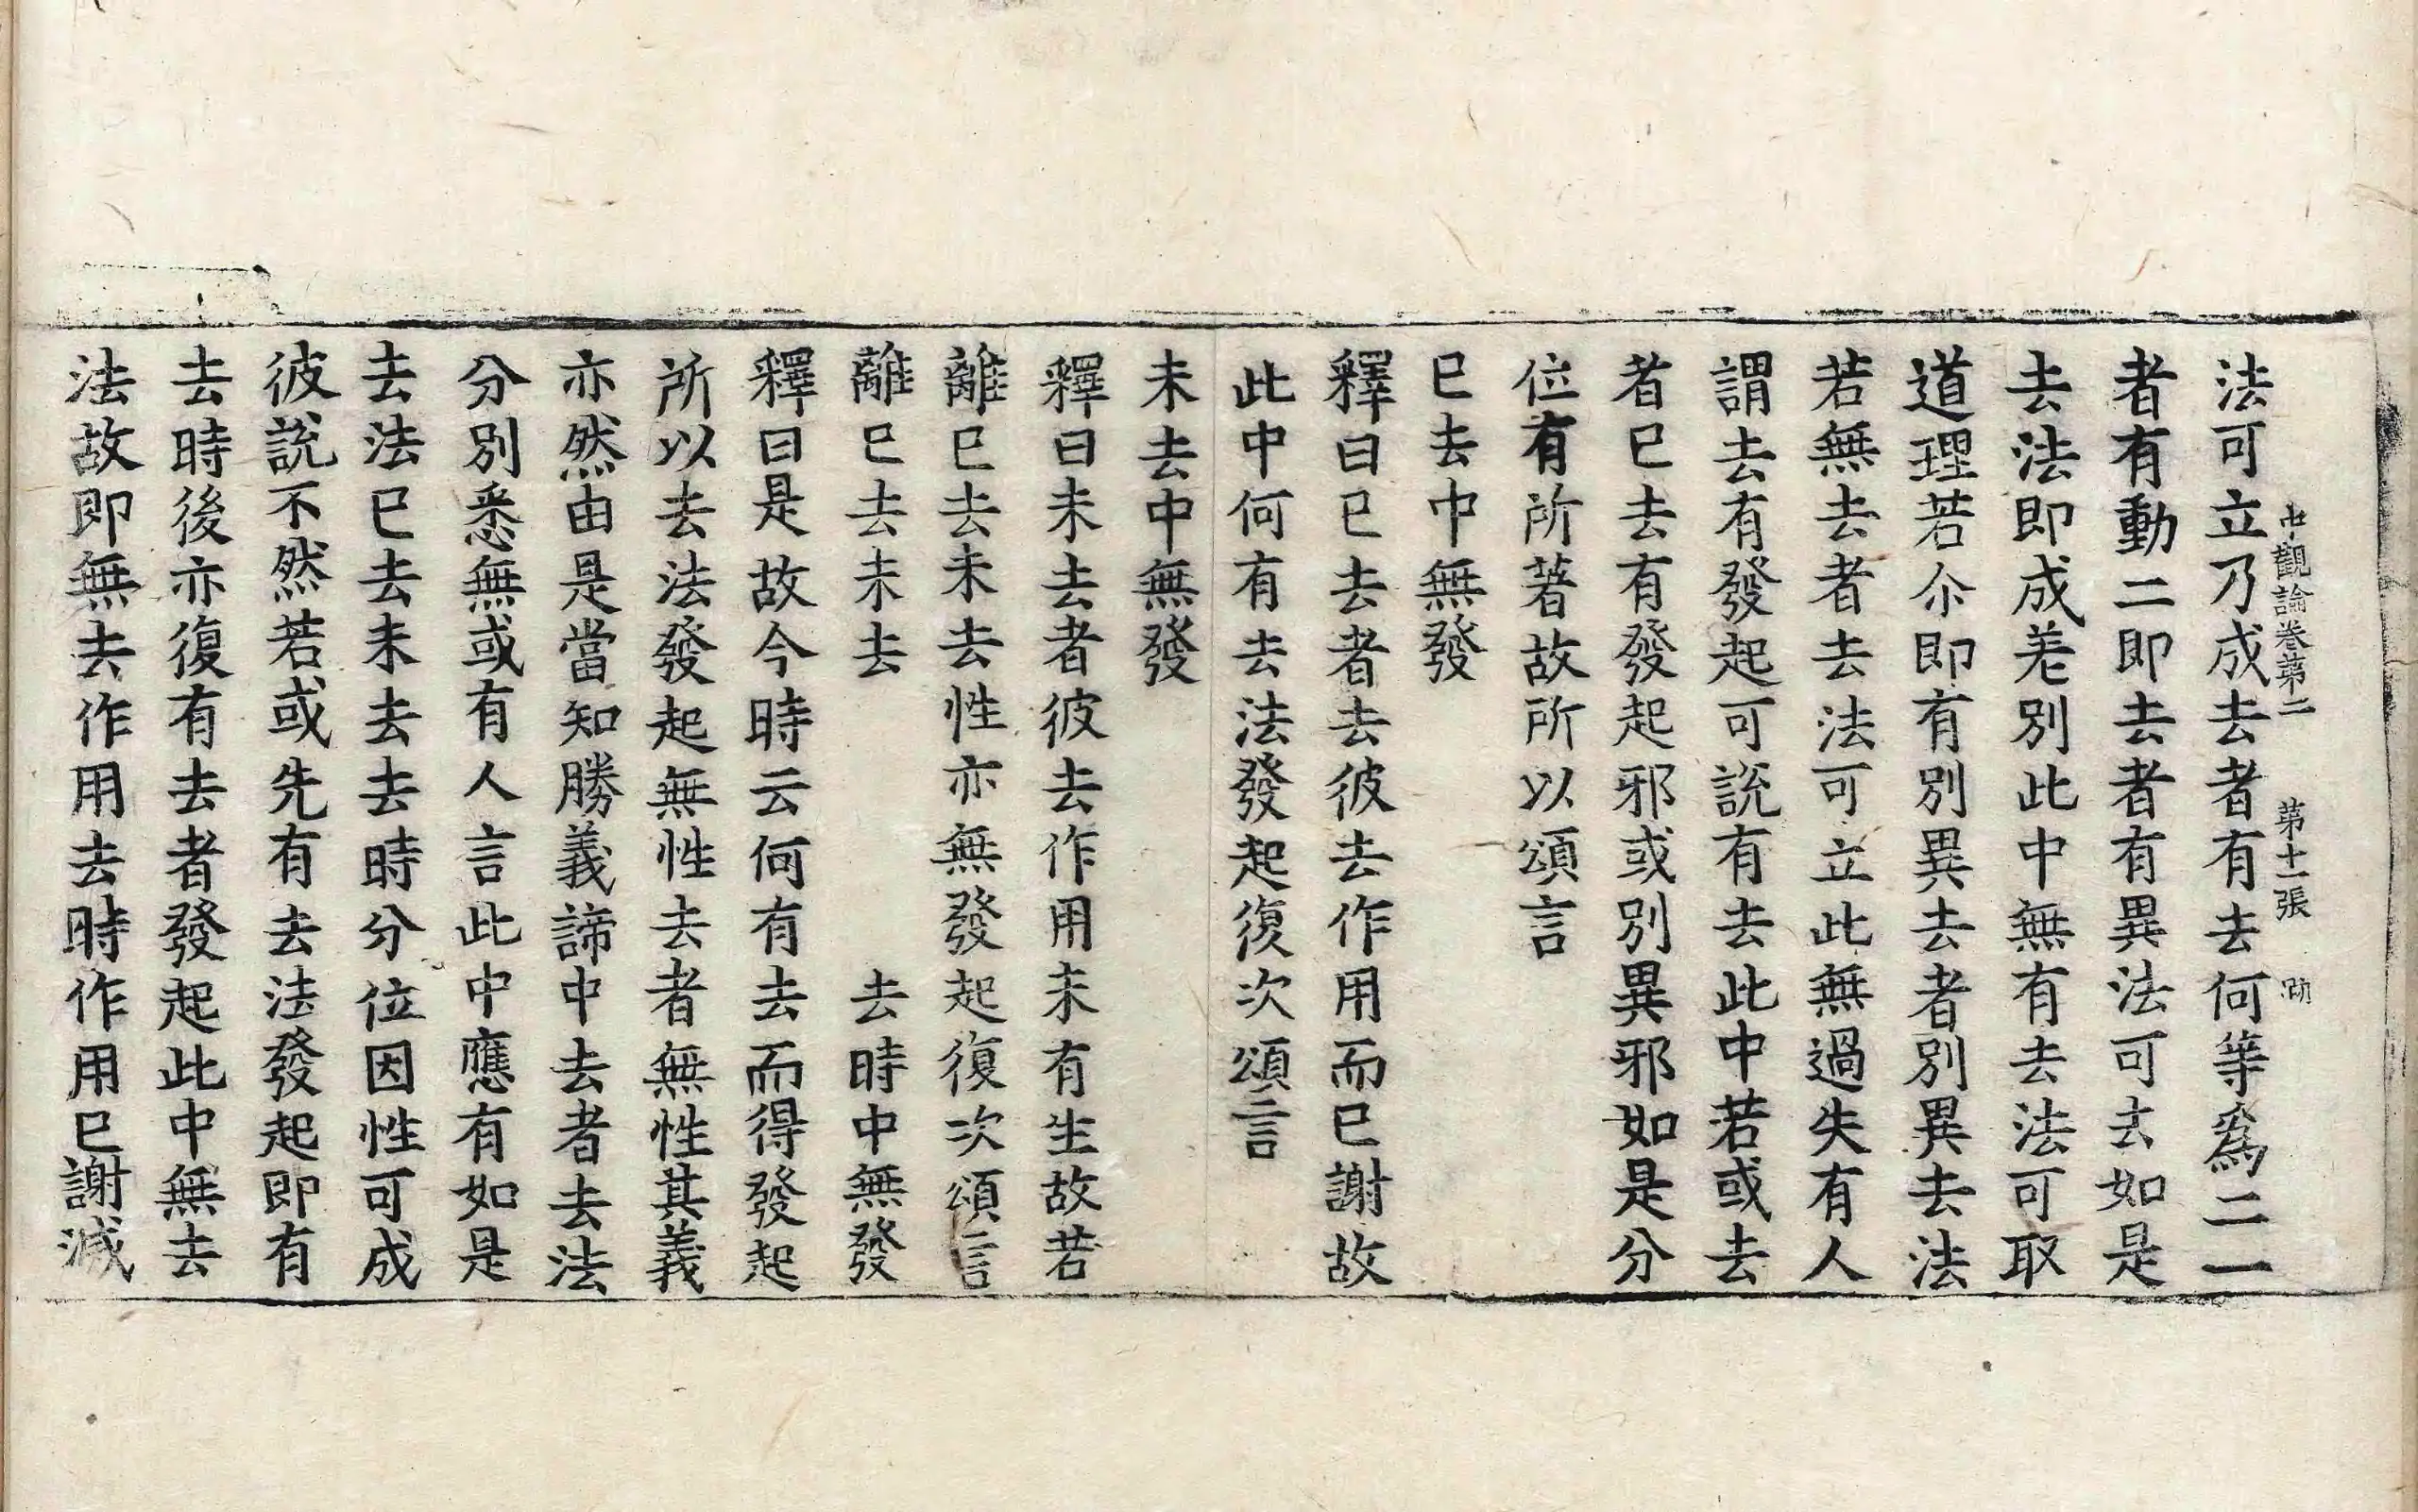 中觀論卷第二　第十一張
法可立乃成去者有去何等爲二一
者有動二即去者有異法可去如是
去法即成差別此中無有去法可取
道理若尒即有別異去者別異去法
若無去者去法可立此無過失有人
謂去有發起可說有去此中若或去
者已去有發起邪或別異邪如是分
位有所著故所以頌言
已去中無發
釋曰已去者去彼去作用而已謝故
此中何有去法發起復次頌言
未去中無發
釋曰未去者彼去作用未有生故若
離已去未去性亦無發起復次頌言
離已去未去　去時中無發
釋曰是故今時云何有去而得發起
所以去法發起無性去者無性其義
亦然由是當知勝義諦中去者去法
分別悉無或有人言此中應有如是
去法已去未去去時分位因性可成
彼說不然若或先有去法發起即有
去時後亦復有去者發起此中無去
法故即無去作用去時作用已謝滅